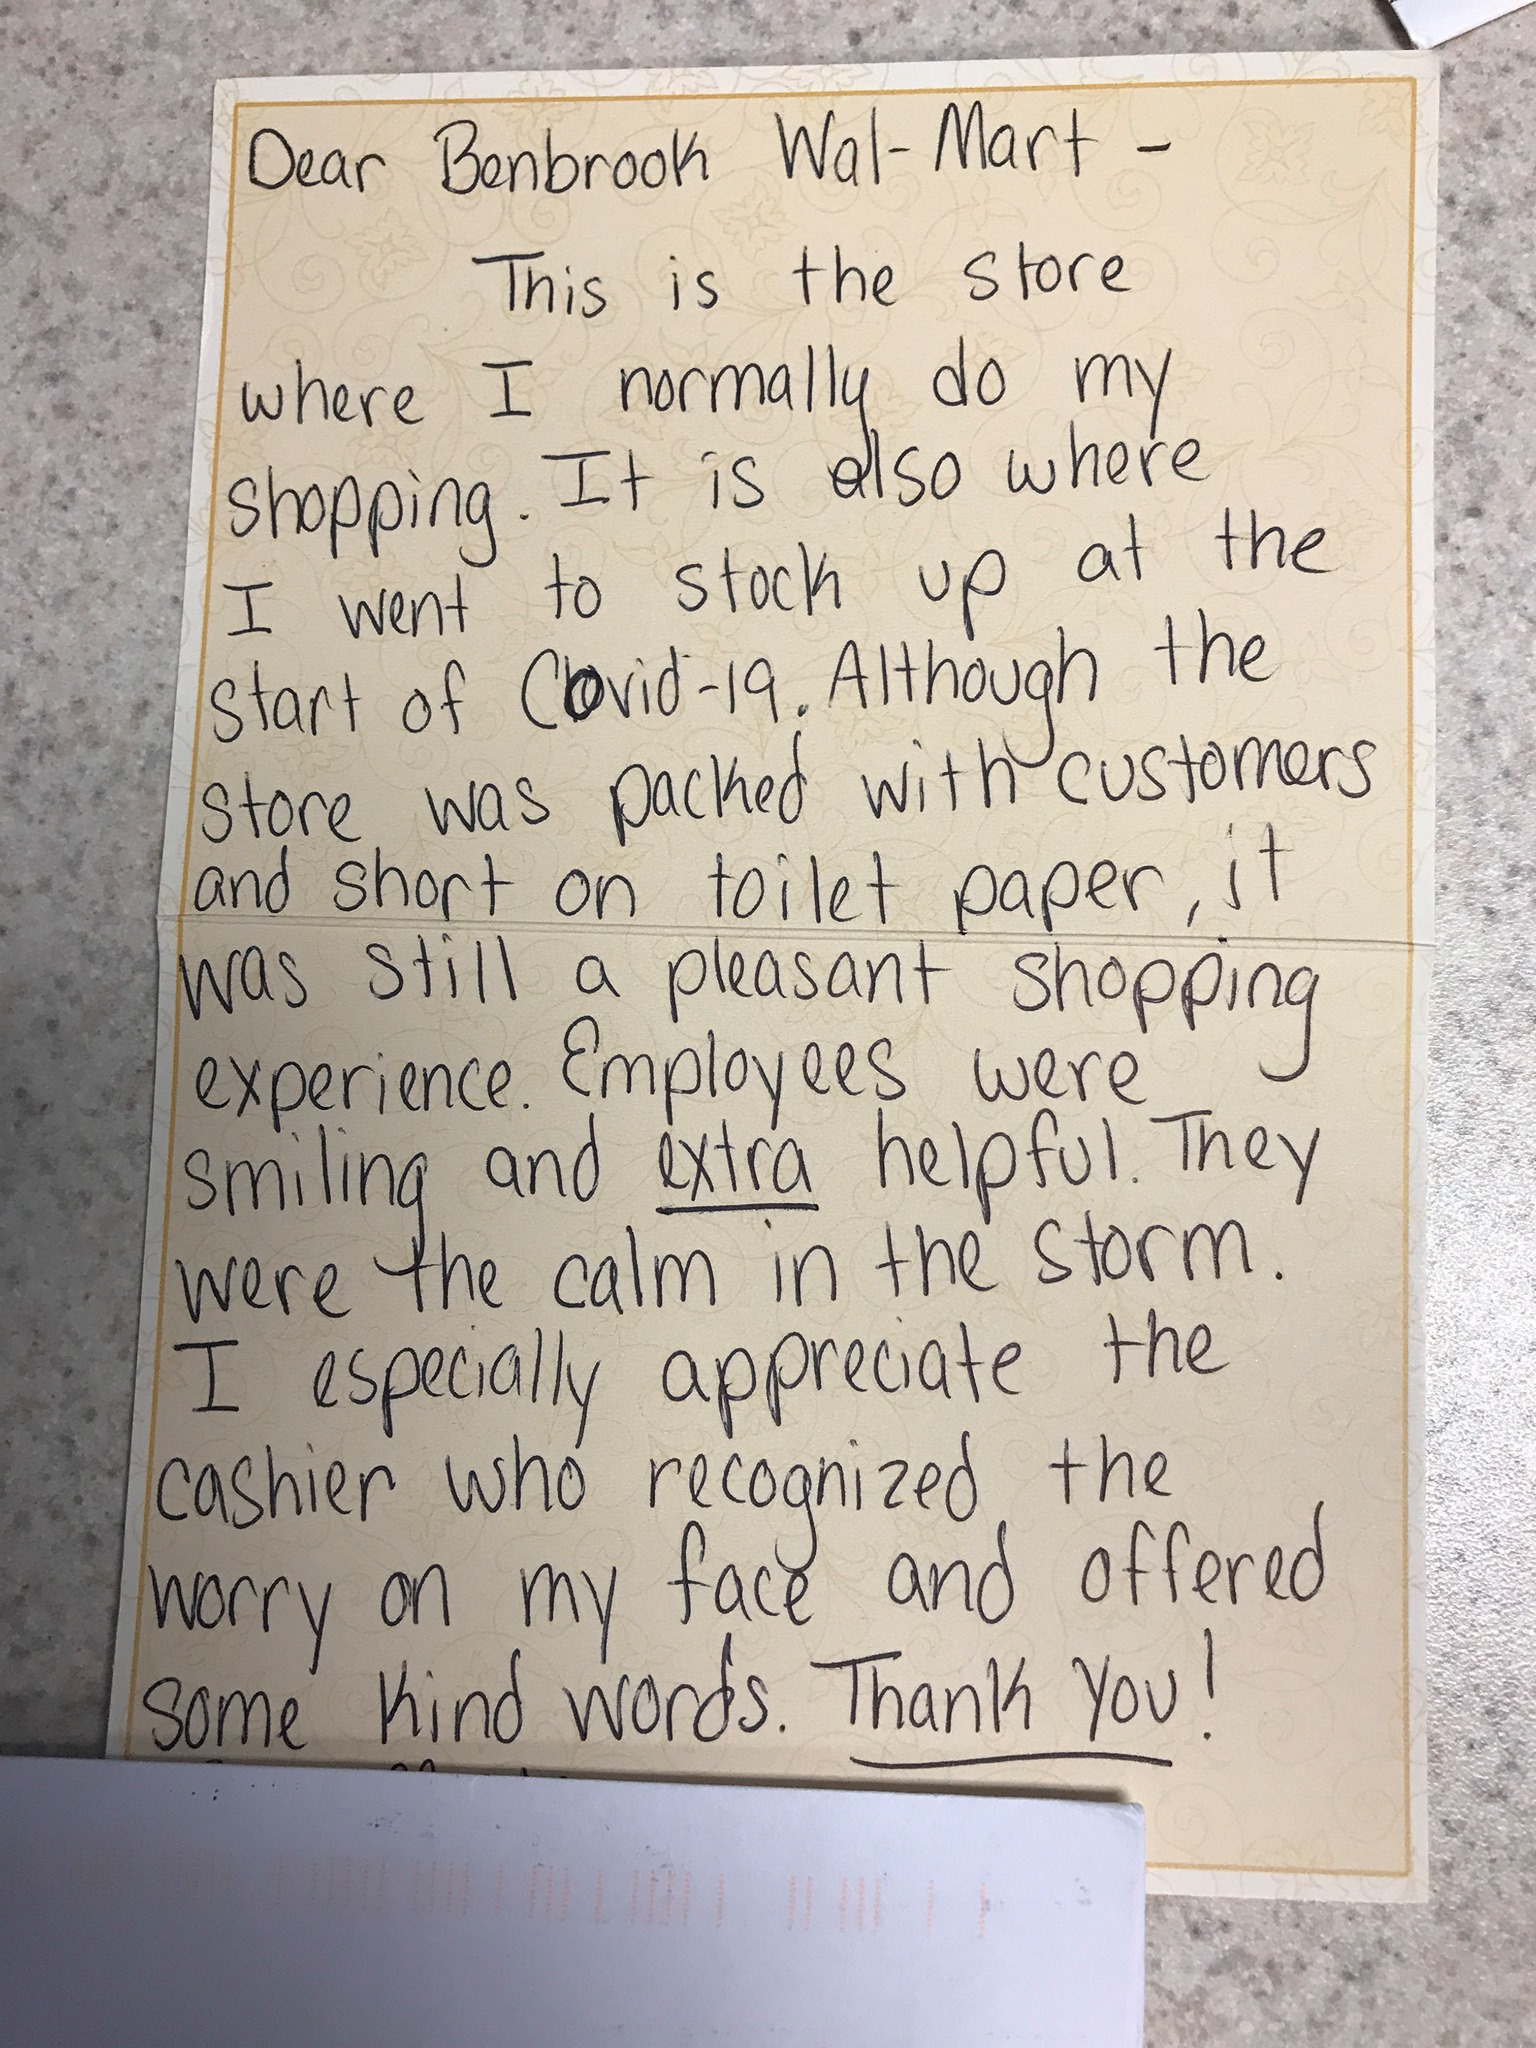 Dear Benbrook Wal-Mart -
This is the store
where I normally do my
shopping. It is also where
I went to stock up at the
start of Covid-19. Although the
store was packed with customers
and short on toilet paper, it
was still a pleasant shopping
experience. Employees were
smiling and extra helpful. They
were the calm in the storm.
I especially appreciate the
cashier who recognized the
worry on my face and offered
some kind words. Thank you!